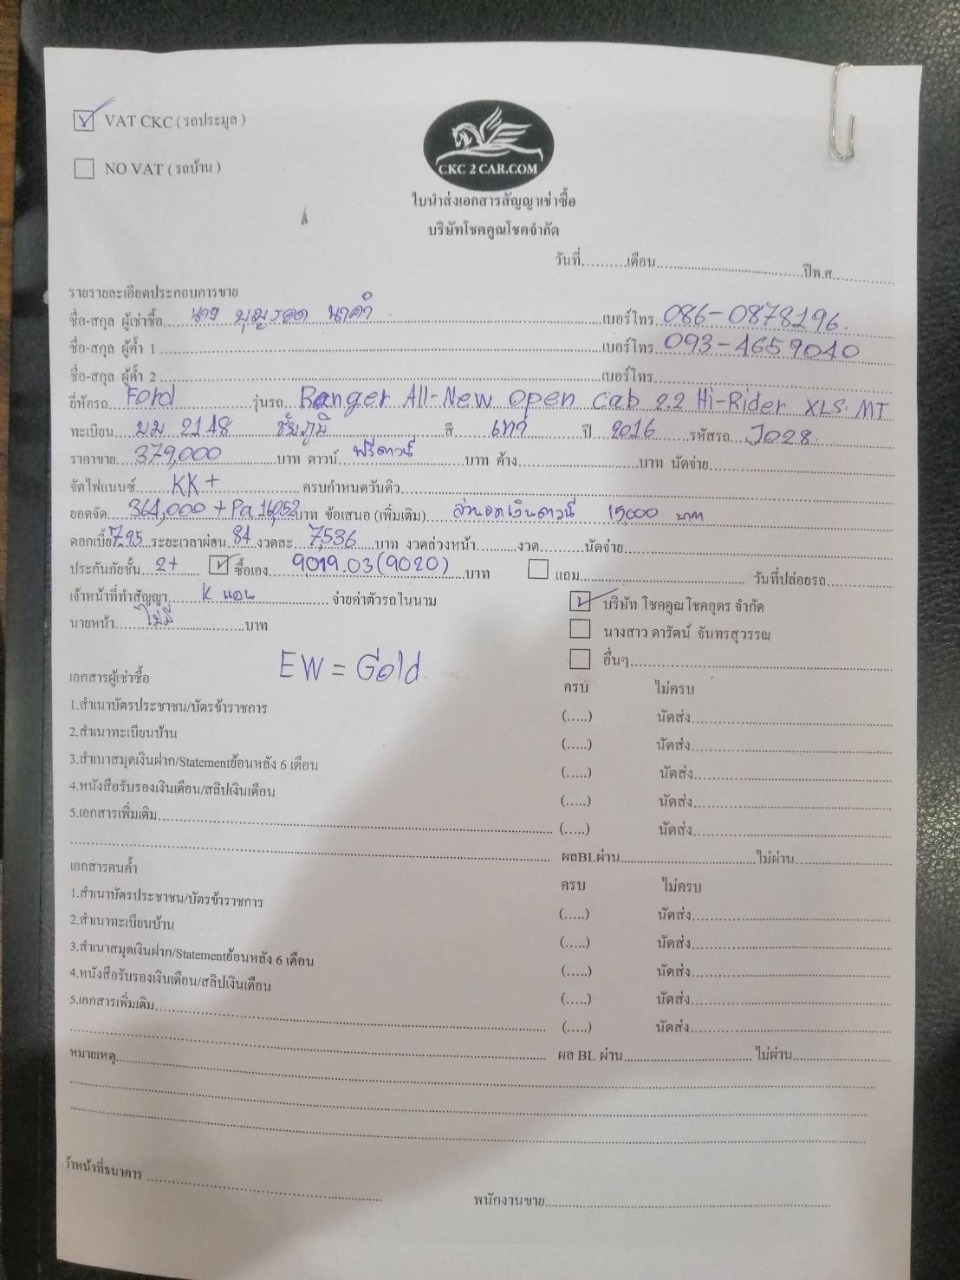 ☑ VAT CKC ( รถประมูล )
☐ NO VAT ( รถบ้าน )
CKC 2 CAR.COM
ใบนำส่งเอกสารสัญญาเช่าซื้อ
บริษัทโชคคูณโชคจำกัด
วันที่..........เดือน..................................ปีพ.ศ..............
รายรายละเอียดประกอบการขาย
ชื่อ-สกุล ผู้เช่าซื้อ.....นาง บุญรอด นาคำ.....เบอร์โทร.086-0878196.
ชื่อ-สกุล ผู้ค้ำ 1..........เบอร์โทร.093-4659040
ชื่อ-สกุล ผู้ค้ำ 2..........เบอร์โทร..........
ยี่ห้อรถ..Ford..........รุ่นรถ. Ranger All-New open cab 2.2 Hi-Rider XLS MT
ทะเบียน บม 2148 ชัยภูมิ สี เทา ปี 2016 รหัสรถ JO28
ราคาขาย...379,000.....บาท ดาวน์. ฟรีดาวน์.....บาท ค้าง..........บาท นัดจ่าย..........
จัดไฟแนนซ์.....KK+.....ครบกำหนดวันดิว..........
ยอดจัด...364,000 + Pa 16052 บาท ข้อเสนอ (เพิ่มเติม).... เงินดาวน์ 15000 บาท
ดอกเบี้ย 7.95 ระยะเวลาผ่อน 84 งวดละ 7,536 บาท งวดล่วงหน้า.........งวด..........นัดจ่าย..........
ประกันภัยชั้น...2+..... ☑ ซื้อเอง....9019.03 (9020).....บาท ☐ แถม.......... วันที่ปล่อยรถ..........
เจ้าหน้าที่ทำสัญญา.....K แดน.....จ่ายค่าตัวรถในนาม ☑ บริษัท โชคคูณโชคอุดร จำกัด
นายหน้า.....ไม่มี.....บาท ☐ นางสาว ดารัตน์ จันทรสุวรรณ
☐ อื่นๆ..........
EW = Gold
เอกสารผู้เช่าซื้อ ครบ ไม่ครบ
1.สำเนาบัตรประชาชน/บัตรข้าราชการ (.....) นัดส่ง..........
2.สำเนาทะเบียนบ้าน (.....) นัดส่ง..........
3.สำเนาสมุดเงินฝาก/Statementย้อนหลัง 6 เดือน (.....) นัดส่ง..........
4.หนังสือรับรองเงินเดือน/สลิปเงินเดือน (.....) นัดส่ง..........
5.เอกสารเพิ่มเติม.......... (.....) นัดส่ง..........
.......... ผลBLผ่าน..........ไม่ผ่าน..........
เอกสารคนค้ำ ครบ ไม่ครบ
1.สำเนาบัตรประชาชน/บัตรข้าราชการ (.....) นัดส่ง..........
2.สำเนาทะเบียนบ้าน (.....) นัดส่ง..........
3.สำเนาสมุดเงินฝาก/Statementย้อนหลัง 6 เดือน (.....) นัดส่ง..........
4.หนังสือรับรองเงินเดือน/สลิปเงินเดือน (.....) นัดส่ง..........
5.เอกสารเพิ่มเติม.......... (.....) นัดส่ง..........
.......... ผล BL ผ่าน..........ไม่ผ่าน..........
หมายเหตุ..........
าหน้าที่ธนาคาร ..........
พนักงานขาย..........